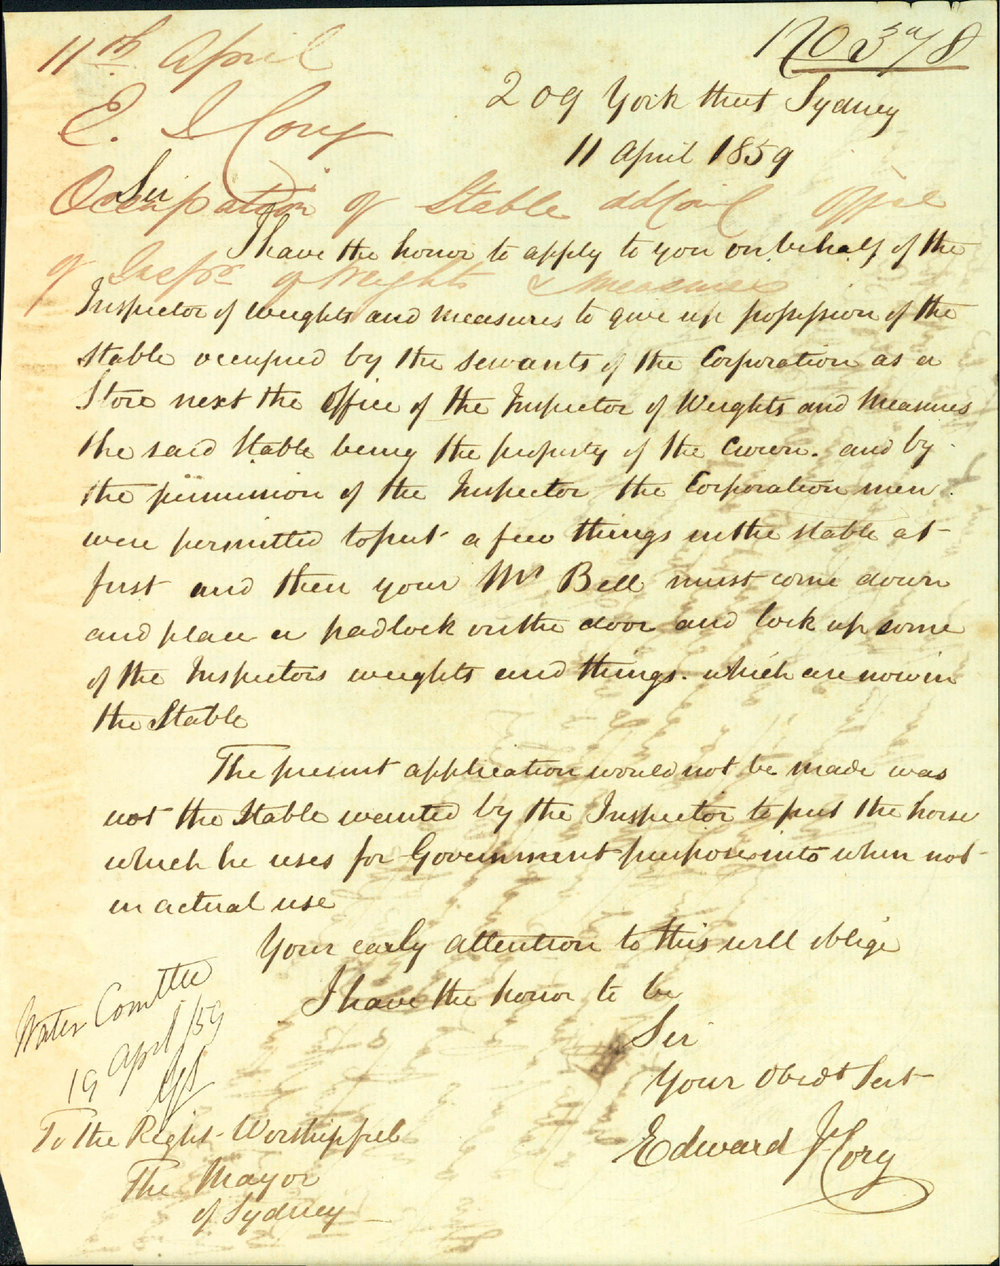 No 378
11th April
E. J Cory
Occupation of Stable adjoing Office
of Inspr of Weights & measures
209 York street Sydney
11 April 1859
Sir
I have the honor to apply to you on behalf of the
Inspector of weights and measures to give up possession of the
stable occupied by the servants of the Corporation as a
Store next the Office of the Inspector of Weights and Measures
the said stable being the property of the Crown. and by
the permission of the Inspector the Corporation men.
were permitted to put a few things in the stable at
first and then your Mr Bell must come down
and place a padlock on the door and lock up some
of the Inspectors weights and things. which are now in
the Stable
The present application would not be made was
not the Stable wanted by the Inspector to put the horse
which he uses for Government purposes into when not
in actual use
Your early attention to this will oblige
I have the honor to be
Sir
Your Obedt Sert
Edward J Cory
Water Comttee
19 April /59
To the Right Worshipful
The Mayor
of Sydney